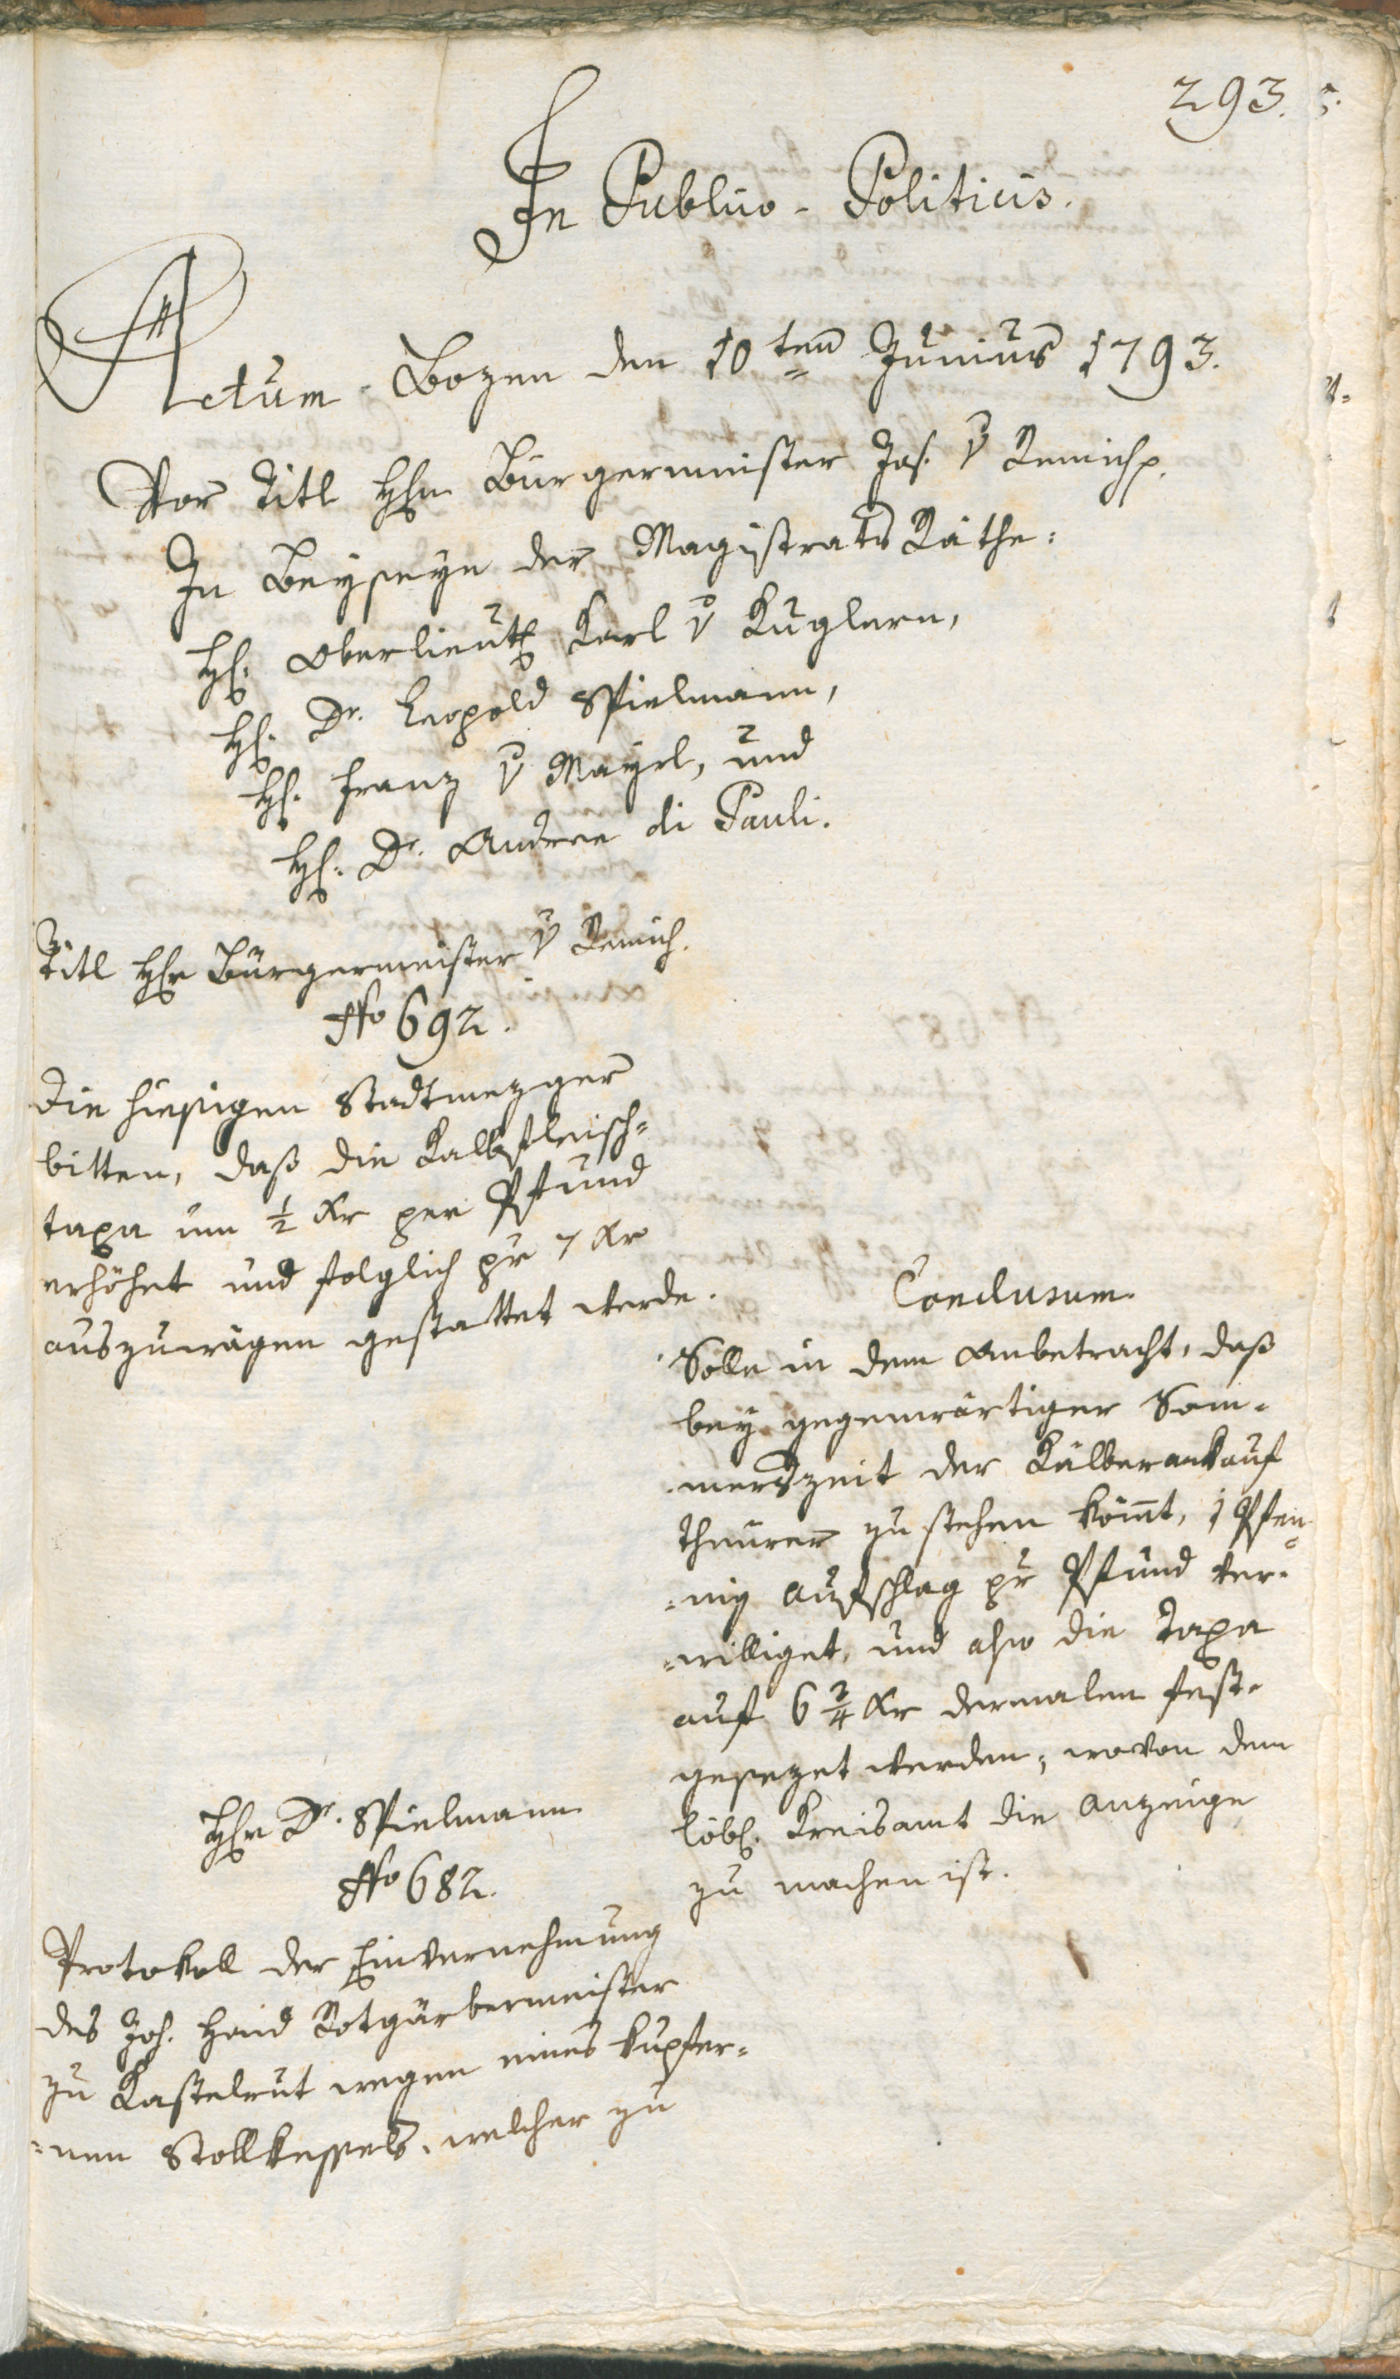 293.
In Publico-Politicis.
Actum Bozen den 10ten Junius 1793.
Vor Titl Hhn Burgermeister Jos. v Remich p.
In Beyseyn der Magistrats Räthe:
Hh. Oberlieut. Karl v Kuglern,
Hh. Dr. Leopold Spielmann,
Hh. Franz v Mayrl, und
Hh. Dr. Andree di Pauli.
Titl Hhr Bürgermeister v Remich.
No 692.
Die hiesigen Stadtmezger
bitten, daß die Kalbfleisch-
taxa um ½ Kr per Pfund
erhöhet und folglich pr 7 Kr
auszuwägen gestattet werde.
Conclusum.
Solle in dem Anbetracht, daß
bey gegenwärtiger Som-
merszeit der Kälberankauf
theurer zu stehen kömt, 1 Pfen-
=nig Aufschlag pr Pfund ver-
=williget, und also die Taxa
auf 6 ¾ Kr dermalen fest-
gesezet werden; wovon dem
löbl. Kreisamt die Anzeige
zu machen ist.
Hhr Dr. Spielmann
No 682.
Protokoll der Einvernehmung
des Joh. Haid Rotgärbermeister
zu Kastelrut wegen eines kupfer-
=nen Stollkessels, welcher zu